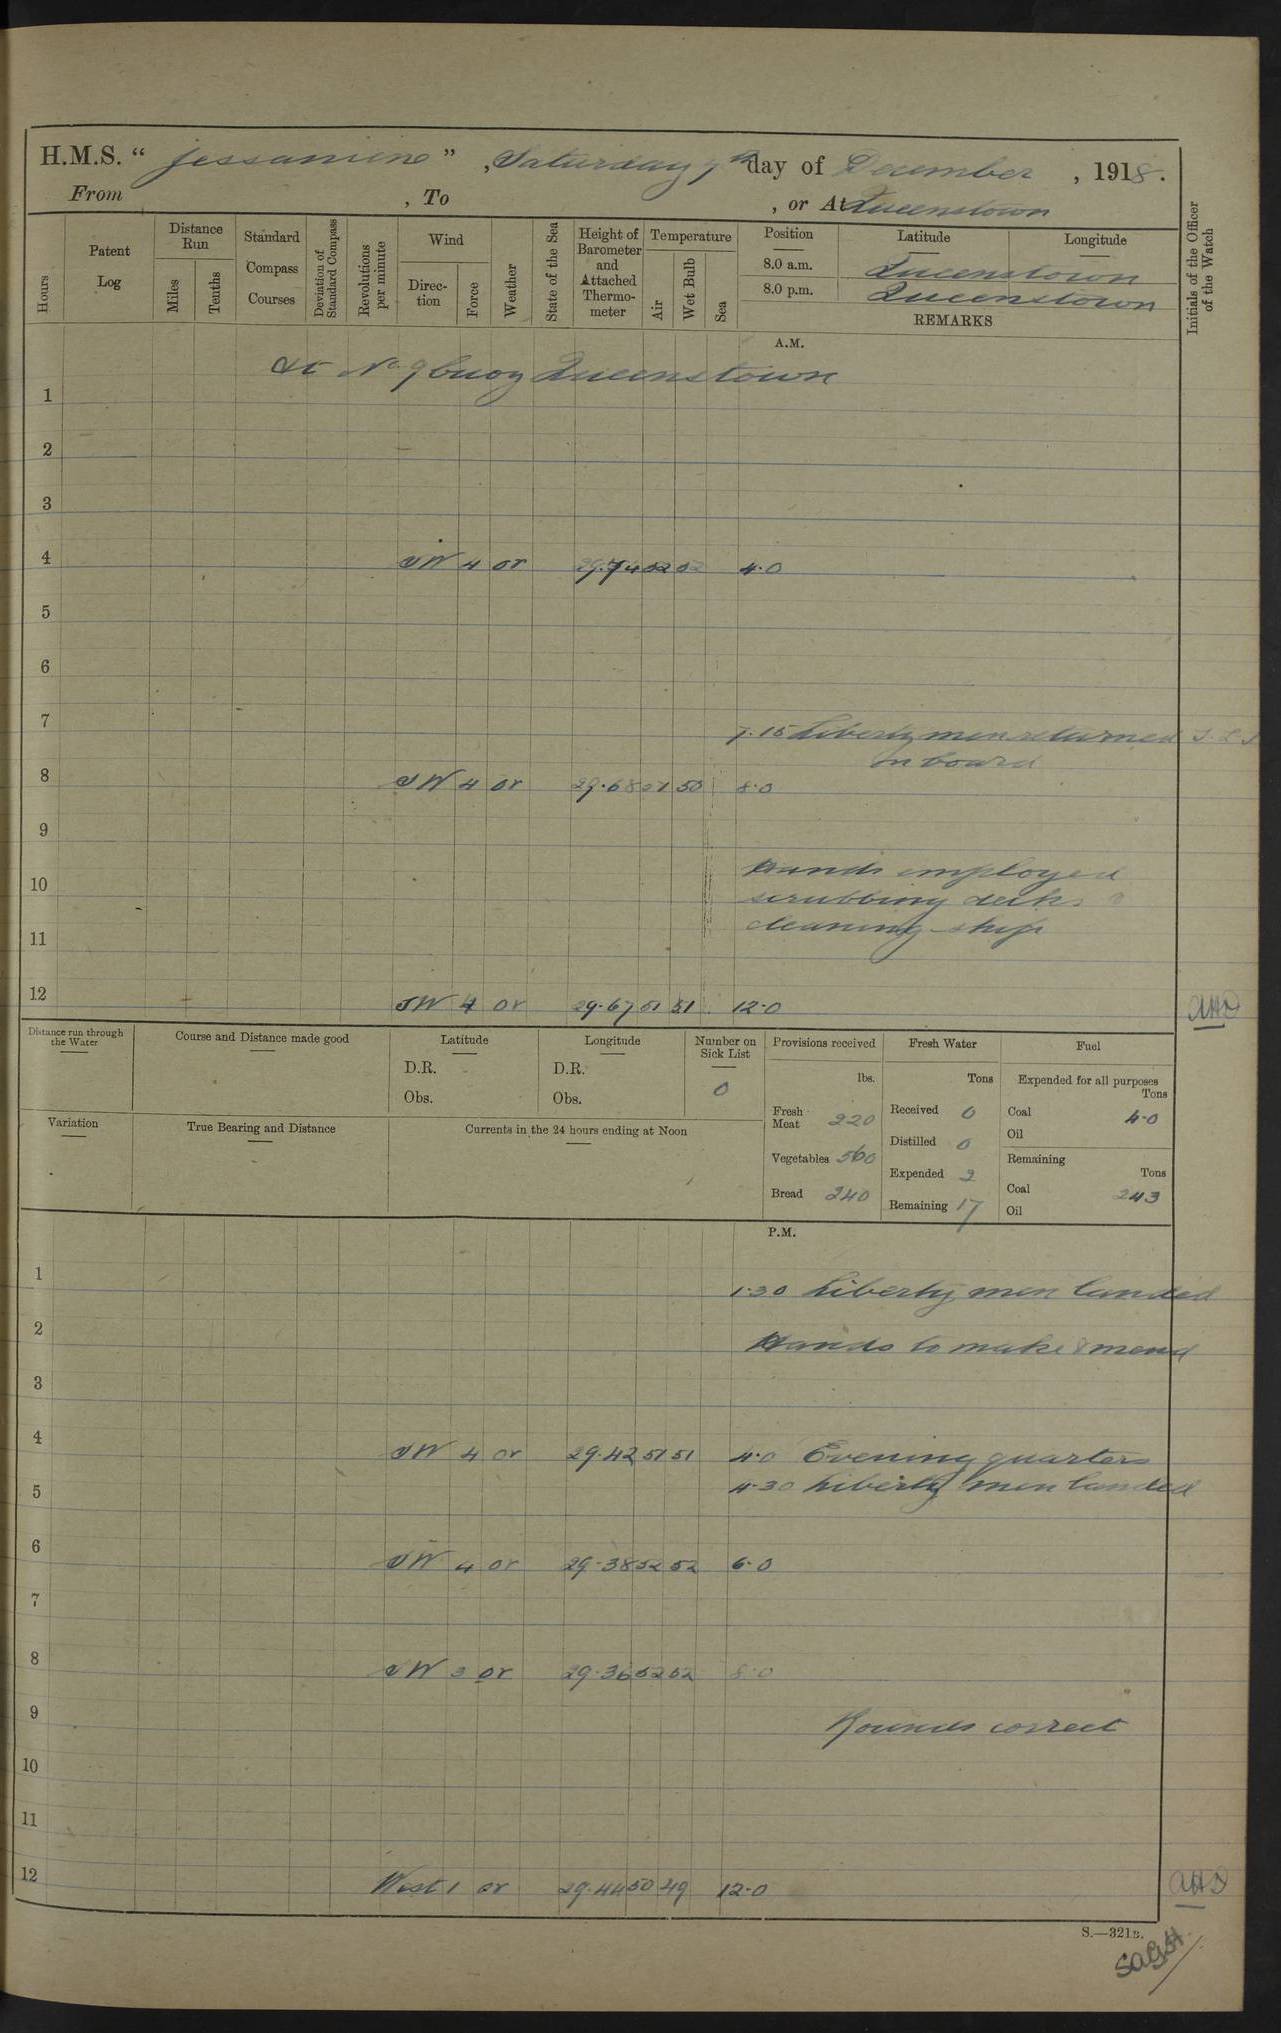 H.M.S. “ Jessamine ” , Saturday 7th day of December , 1918.
From , To , or At Queenstown
Hours
Patent Log
Distance Run
Miles
Tenths
Standard Compass Courses
Deviation of Standard Compass
Revolutions per minute
Wind
Direction
Force
Weather
State of the Sea
Height of Barometer and Attached Thermometer
Temperature
Air
Wet Bulb
Sea
Position
Latitude
Longitude
8.0 a.m. Queenstown
8.0 p.m. Queenstown
REMARKS
Initials of the Officer of the Watch
A.M.
At No 9 buoy Queenstown
1
2
3
4 SW 4 or 29.74 52 52 4.0
5
6
7 7.15 Liberty men returned
on board
8 SW 4 or 29.68 51 50 8.0
9
10 Hands employed
scrubbing decks &
11 cleaning ship
12 SW 4 or 29.67 51 51 12.0
Distance run through the Water
Course and Distance made good
Latitude
D.R.
Obs.
Longitude
D.R.
Obs.
Number on Sick List
0
Provisions received
lbs.
Fresh Meat 220
Vegetables 560
Bread 240
Fresh Water
Tons
Received 0
Distilled 0
Expended 2
Remaining 17
Fuel
Expended for all purposes
Tons
Coal 4.0
Oil
Remaining
Tons
Coal 243
Oil
Variation
True Bearing and Distance
Currents in the 24 hours ending at Noon
P.M.
1 1.30 Liberty men landed
2 Hands to make & mend
3
4 SW 4 or 29.42 51 51 4.0 Evening quarters
4.30 Liberty men landed
5
6 SW 4 or 29.38 52 52 6.0
7
8 SW 3 or 29.36 52 52 8.0
9 Rounds correct
10
11
12 West 1 or 29.44 50 49 12.0
S.—321B.